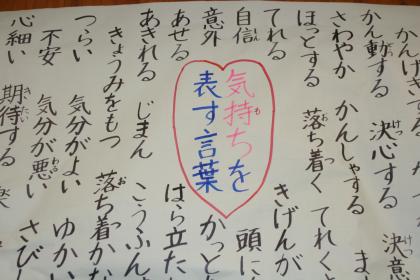 かんげき
決意
かん動する　決心する　ま
さわやか　かんしゃする
ほっとする　落ち着く　てれく
てれる　きげんが
自信　頭に
気持ちを
表す言葉
意外　かっと
あせる　はら立た
あきれる　じまん　こうふん
きょうみをもつ　落ち着かな
つらい　気分がよい　ゆかい
不安　気分が悪い　さびし
心細い　期待する　楽